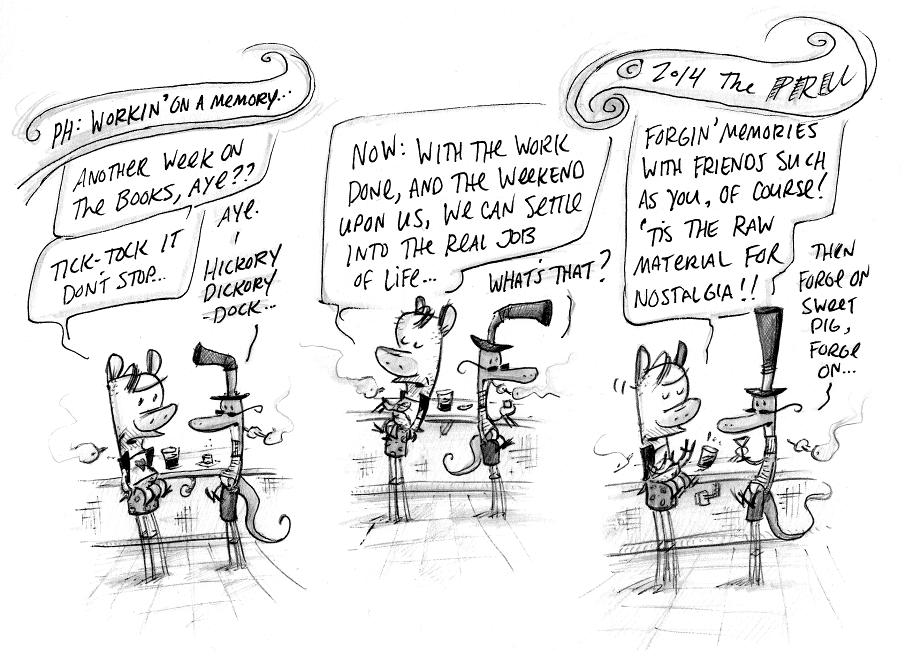 PH: WORKIN' ON A MEMORY...
ANOTHER WEEK ON
THE BOOKS, AYE??
AYE.
TICK-TOCK IT
DON'T STOP...
HICKORY
DICKORY
DOCK...
NOW: WITH THE WORK
DONE, AND THE WEEKEND
UPON US, WE CAN SETTLE
INTO THE REAL JOB
OF LIFE...
WHAT'S THAT?
© 2014 The
FORGIN' MEMORIES
WITH FRIENDS SUCH
AS YOU, OF COURSE!
'TIS THE RAW
MATERIAL FOR
NOSTALGIA!!
THEN
FORGE ON
SWEET
PIG,
FORGE
ON...